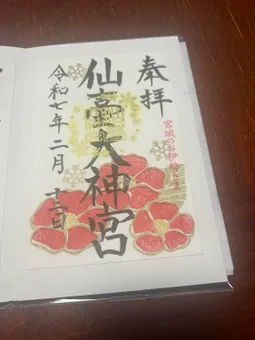 奉拝
宮城のお伊勢さま
仙臺大神宮
令和七年二月十二日